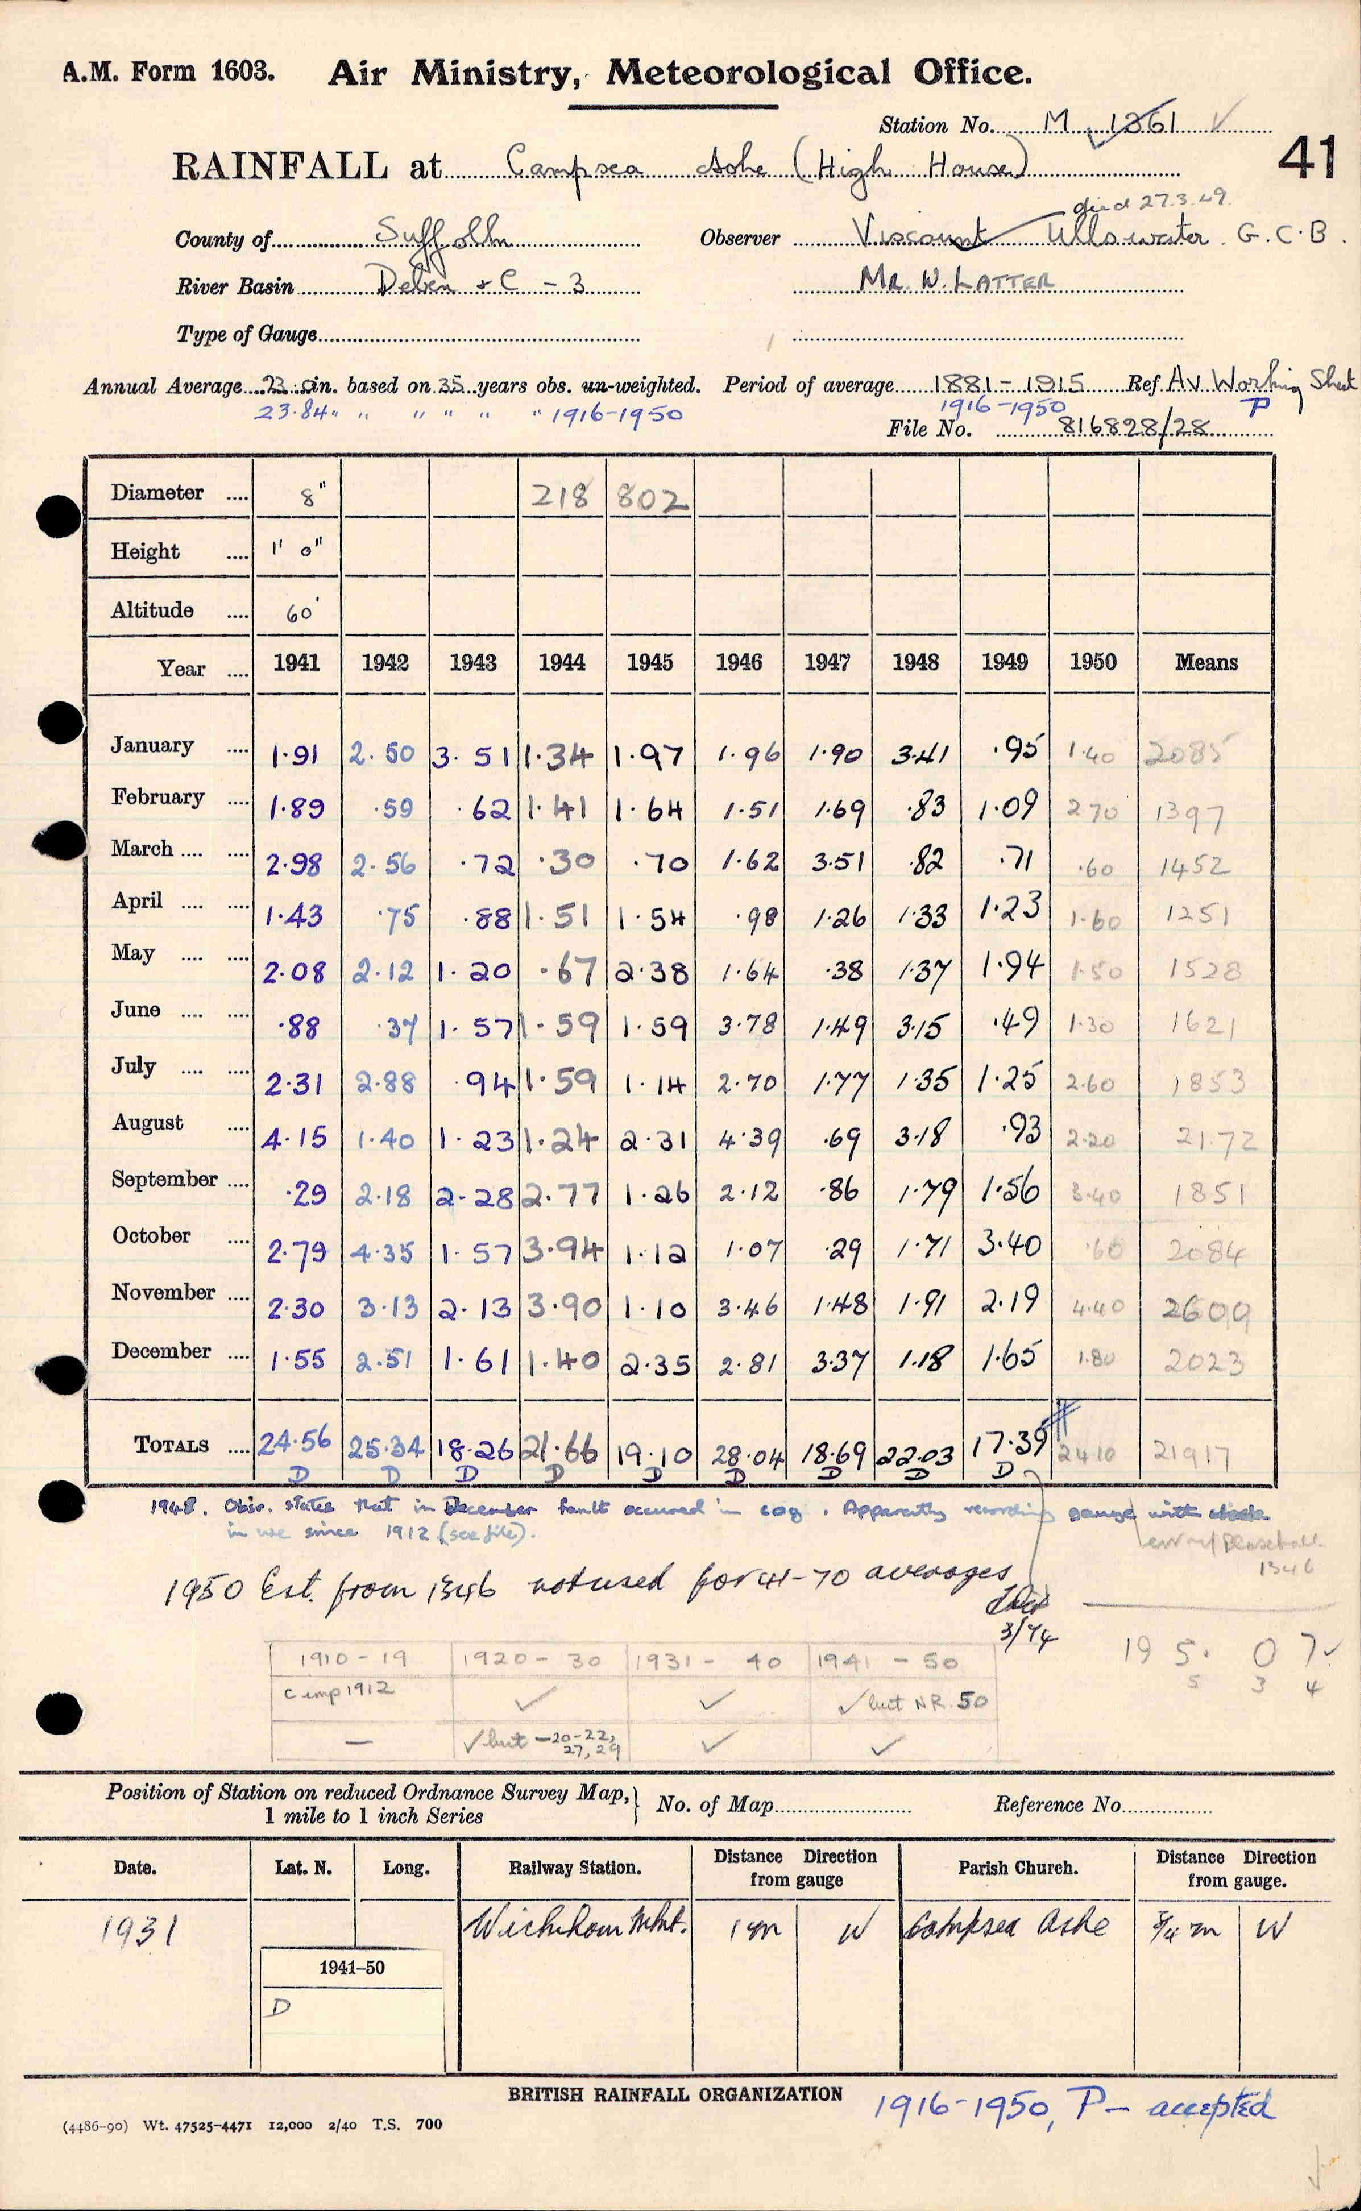 A.M. Form 1603. Air Ministry, Meteorological Office.
Station No. M 1361 ✓
41
RAINFALL at Campsea Ashe (High House)
died 27.3.49.
County of Suffolk Observer Viscount Ullswater. G.C.B.
River Basin Deben + C - 3 Mr. W. LATTER
Type of Gauge
Annual Average 23.0 in. based on 35 years obs. un-weighted. Period of average 1881-1915 Ref Av Working Sheet
23.84 " " " " " " 1916-1950 1916-1950 P
File No. 816828/28
Diameter .... 8" 218 802
Height .... 1' 0"
Altitude .... 60'
Year .... 1941 1942 1943 1944 1945 1946 1947 1948 1949 1950 Means
January .... 1.91 2.50 3.51 1.34 1.97 1.96 1.90 3.41 .95 1.40 2085
February .... 1.89 .59 .62 1.41 1.64 1.51 1.69 .83 1.09 2.70 1397
March .... .... 2.98 2.56 .72 .30 .70 1.62 3.51 .82 .71 .60 1452
April .... .... 1.43 .75 .88 1.51 1.54 .98 1.26 1.33 1.23 1.60 1251
May .... .... 2.08 2.12 1.20 .67 2.38 1.64 .38 1.37 1.94 1.50 1528
June .... .... .88 .37 1.57 1.59 1.59 3.78 1.49 3.15 .49 1.30 1621
July .... .... 2.31 2.88 .94 1.59 1.14 2.70 1.77 1.35 1.25 2.60 1853
August .... 4.15 1.40 1.23 1.24 2.31 4.39 .69 3.18 .93 2.20 2172
September .... .29 2.18 2.28 2.77 1.26 2.12 .86 1.79 1.56 3.40 1851
October .... 2.79 4.35 1.57 3.94 1.12 1.07 .29 1.71 3.40 .60 2084
November .... 2.30 3.13 2.13 3.90 1.10 3.46 1.48 1.91 2.19 4.40 2600
December .... 1.55 2.51 1.61 1.40 2.35 2.81 3.37 1.18 1.65 1.80 2023
TOTALS .... 24.56 25.34 18.26 21.66 19.10 28.04 18.69 22.03 17.39 24.10 21917
D D D D D D D D D
1948. Obsr. states that in December fault occured in cog. Apparently recording gauge with clock
in use since 1912 (see file).
1346
1950 Est. from 1346 not used for 41-70 averages
3/74
1910-19 1920-30 1931-40 1941-50
19 5. 0 7 ✓
5 3 4
Cmp 1912 ✓ ✓ ✓ but NR 50
— ✓ but —20-22, 27, 29 ✓ ✓
Position of Station on reduced Ordnance Survey Map,} No. of Map Reference No.
1 mile to 1 inch Series
Date. Lat. N. Long. Railway Station. Distance Direction from gauge Parish Church. Distance Direction from gauge.
1931 Wickham Mkt. 1 m W Campsea Ashe 3/4 m W
1941-50
D
BRITISH RAINFALL ORGANIZATION
1916-1950, P — accepted
(4486-90) Wt. 47525-4471 12,000 2/40 T.S. 700